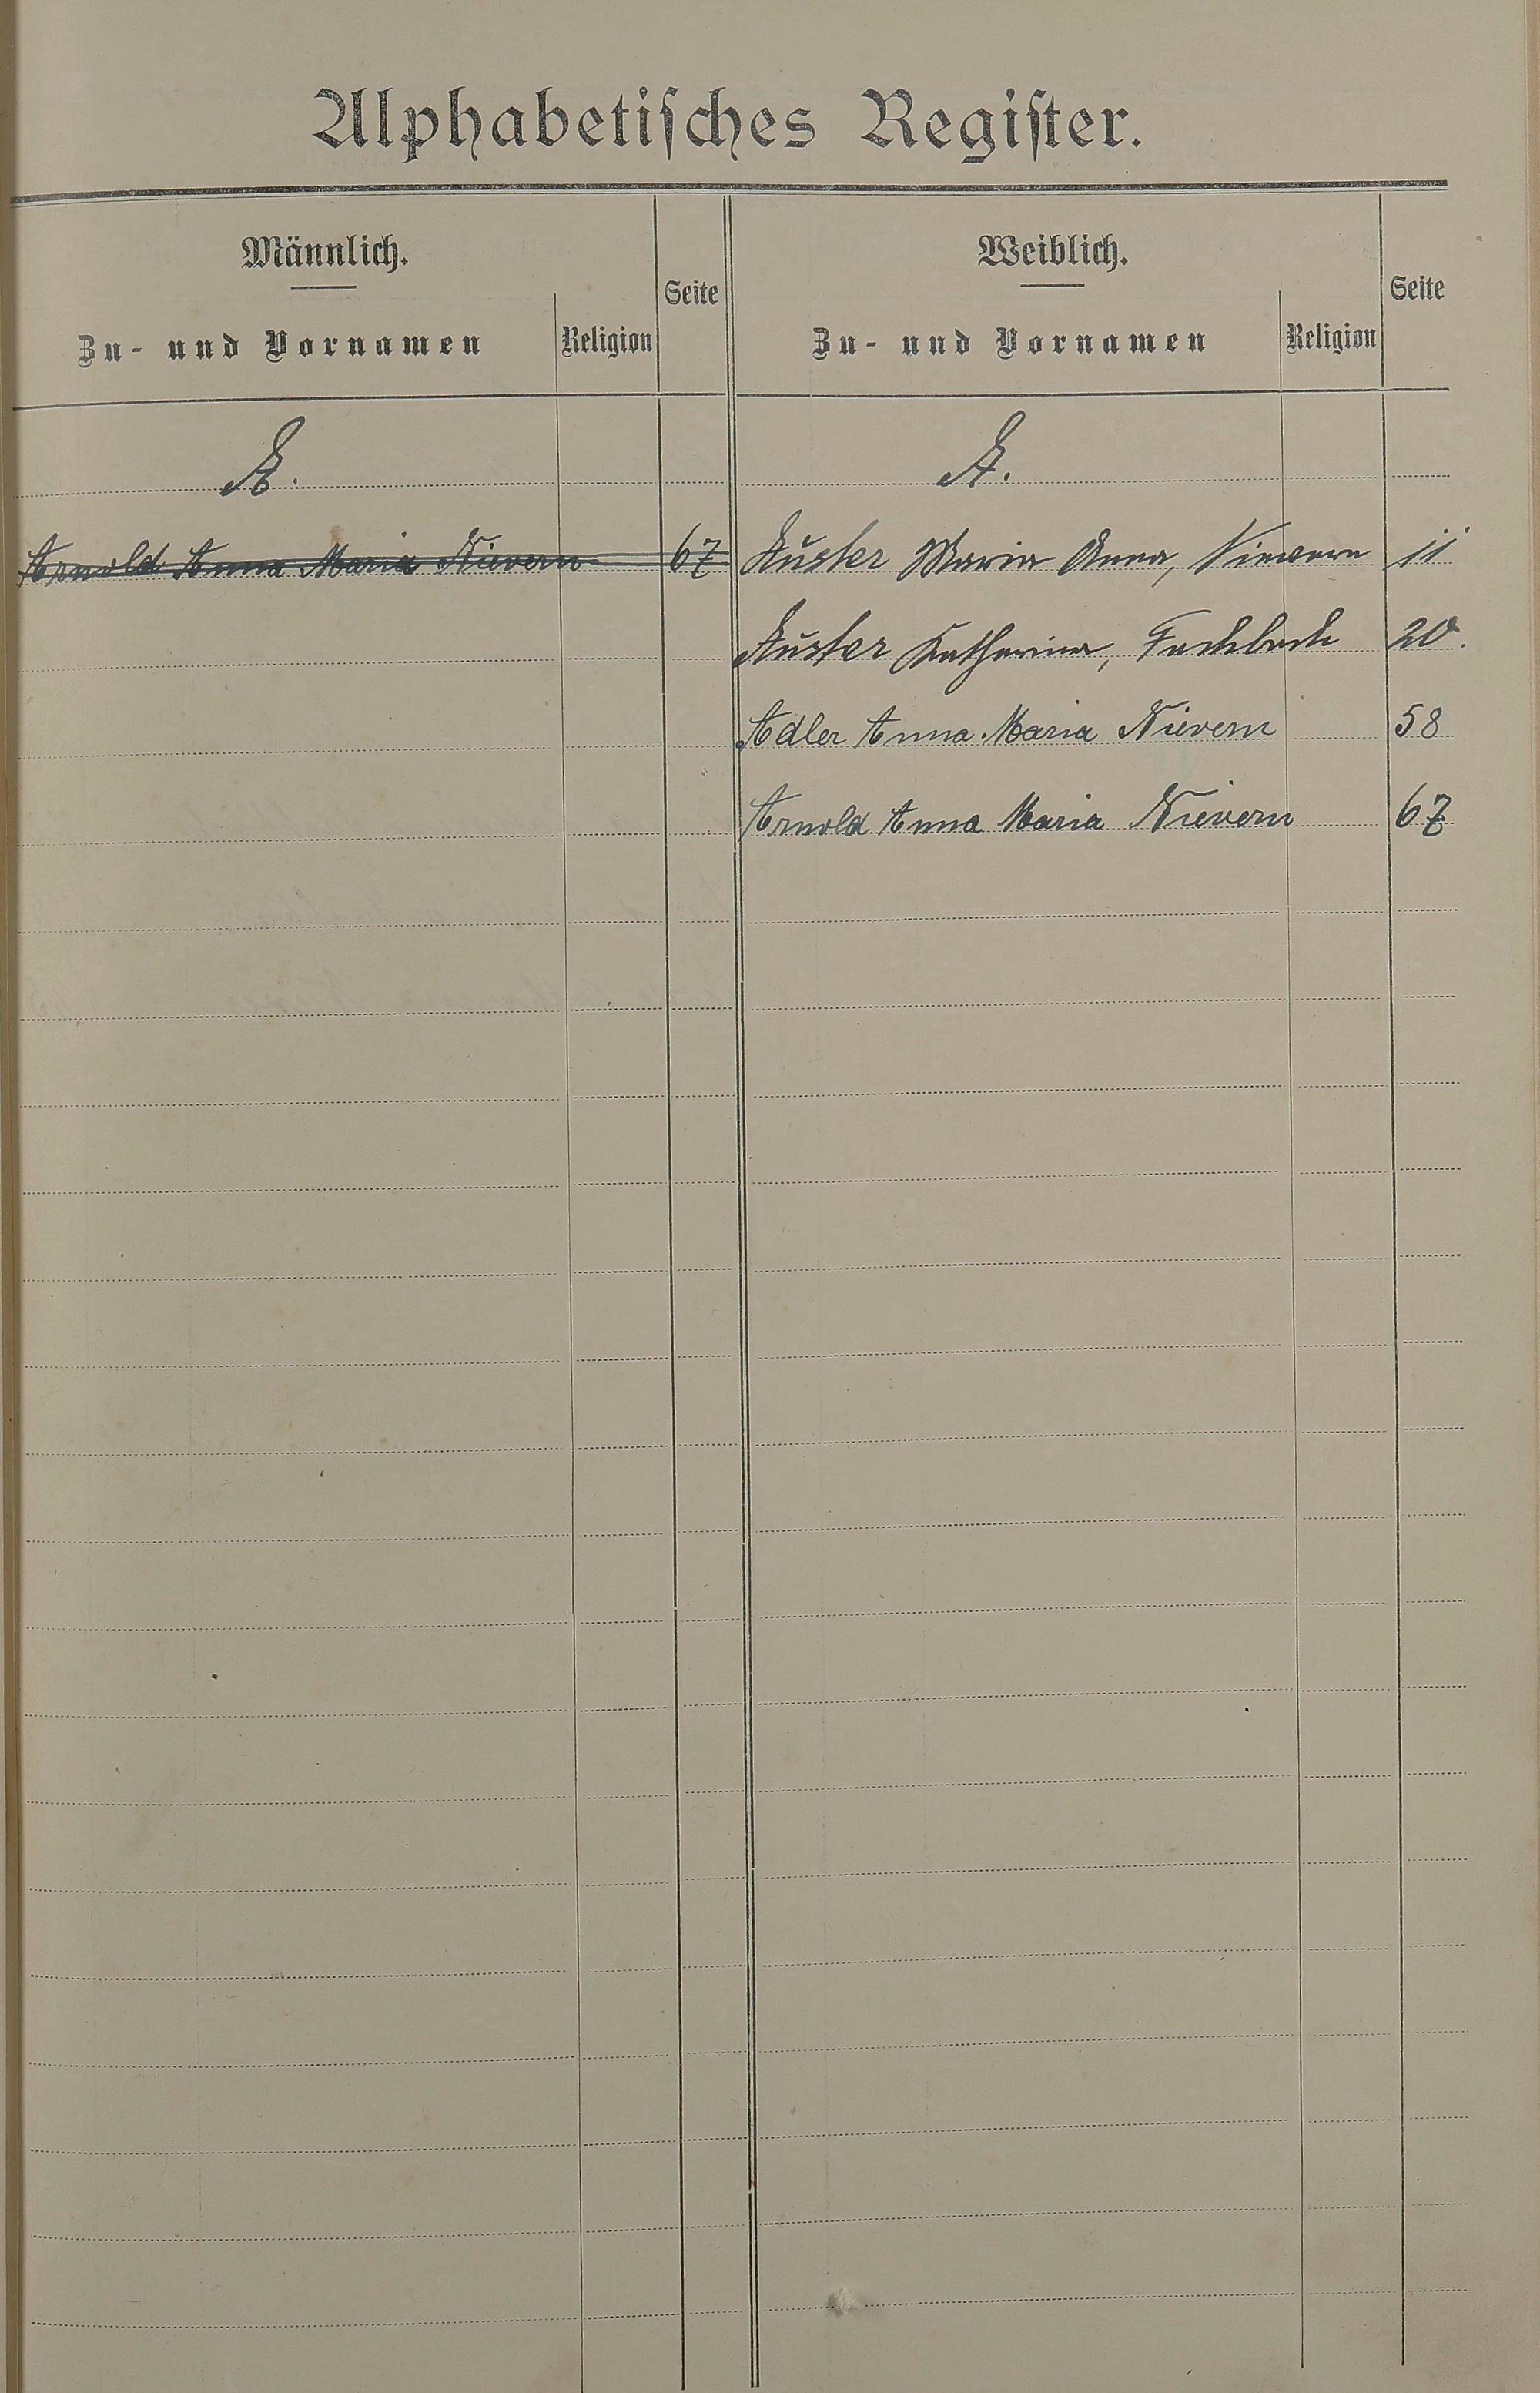 Alphabetisches Register.
Männlich.
Seite
Zu- und Vornamen
Religion
A.
Arnold Anna Maria Nievern 67
Weiblich.
Seite
Zu- und Vornamen
Religion
A.
Auster Maria Anna, Nievern 11
Auster Katharina, Fachbach 20.
Adler Anna Maria Nievern 58
Arnold Anna Maria Nievern 67